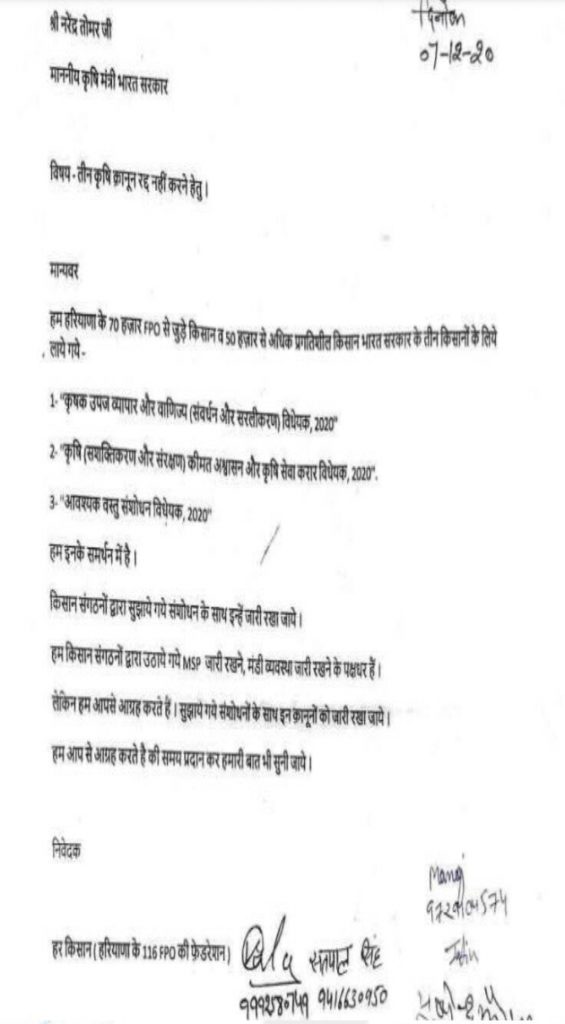 श्री नरेंद्र तोमर जी
दिनांक
07-12-20
माननीय कृषि मंत्री भारत सरकार
विषय - तीन कृषि क़ानून रद्द नहीं करने हेतु।
मान्यवर
हम हरियाणा के 70 हज़ार FPO से जुड़े किसान व 50 हज़ार से अधिक प्रगतिशील किसान भारत सरकार के तीन किसानों के लिये
लाये गये -
1- "कृषक उपज व्यापार और वाणिज्य (संवर्धन और सरलीकरण) विधेयक, 2020"
2- "कृषि (सशक्तिकरण और संरक्षण) कीमत अश्वासन और कृषि सेवा करार विधेयक, 2020".
3- "आवश्यक वस्तु संशोधन विधेयक, 2020"
हम इनके समर्थन में है।
किसान संगठनों द्वारा सुझाये गये संशोधन के साथ इन्हें जारी रखा जाये।
हम किसान संगठनों द्वारा उठाये गये MSP जारी रखने, मंडी व्यवस्था जारी रखने के पक्षधर हैं।
लेकिन हम आपसे आग्रह करते हैं। सुझाये गये संशोधनों के साथ इन क़ानूनों को जारी रखा जाये।
हम आप से आग्रह करते है की समय प्रदान कर हमारी बात भी सुनी जाये।
निवेदक
हर किसान ( हरियाणा के 116 FPO की फ़ेडरेशन )
सतपाल सिंह
9416630950